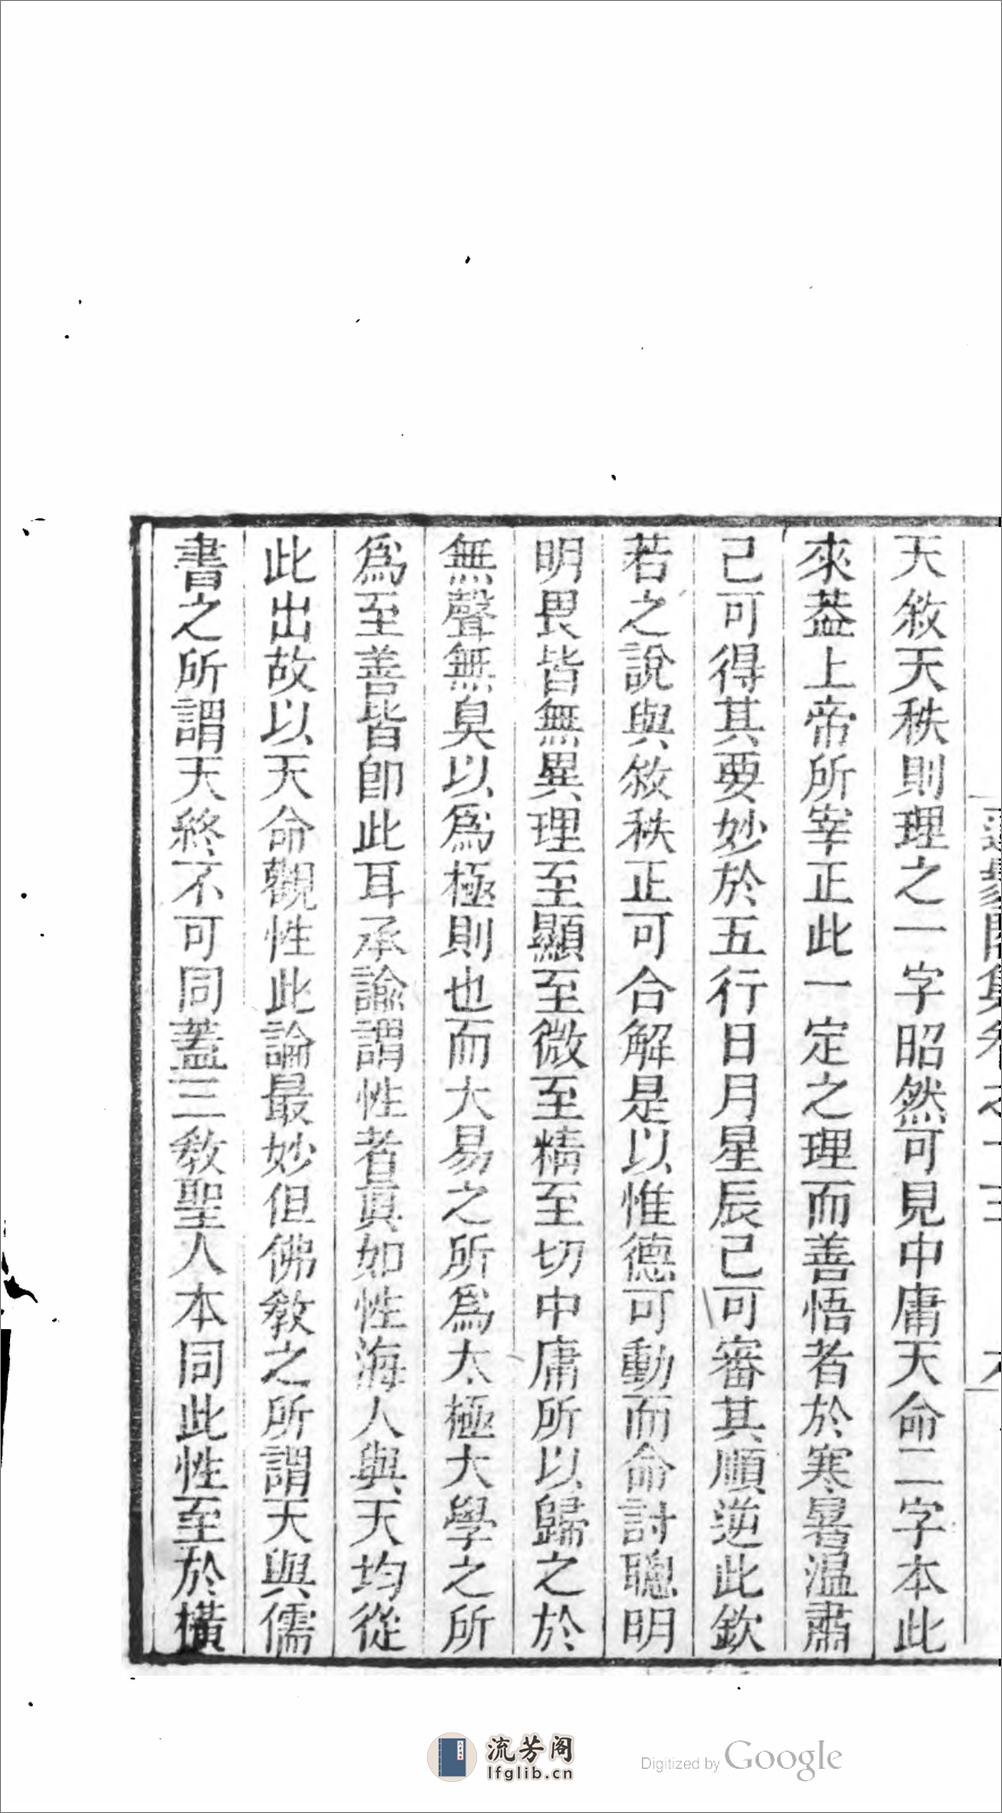 天敘天秩則理之一字昭然可見中庸天命二字本此
來葢上帝所宰正此一定之理而善悟者於寒暑温肅
己可得其要妙於五行日月星辰己可審其順逆此欽
若之說與敘秩正可合解是以惟德可動而命討聰明
明畏皆無異理至顯至微至精至切中庸所以歸之於
無聲無臭以爲極則也而大易之所爲太極大學之所
爲至善皆卽此耳承諭謂性者眞如性海人與天均從
此出故以天命觀性此論最妙但佛教之所謂天與儒
書之所謂天終不可同蓋三教聖人本同此性至於橫
流芳阁
lfglib.cn
Digitized by Google